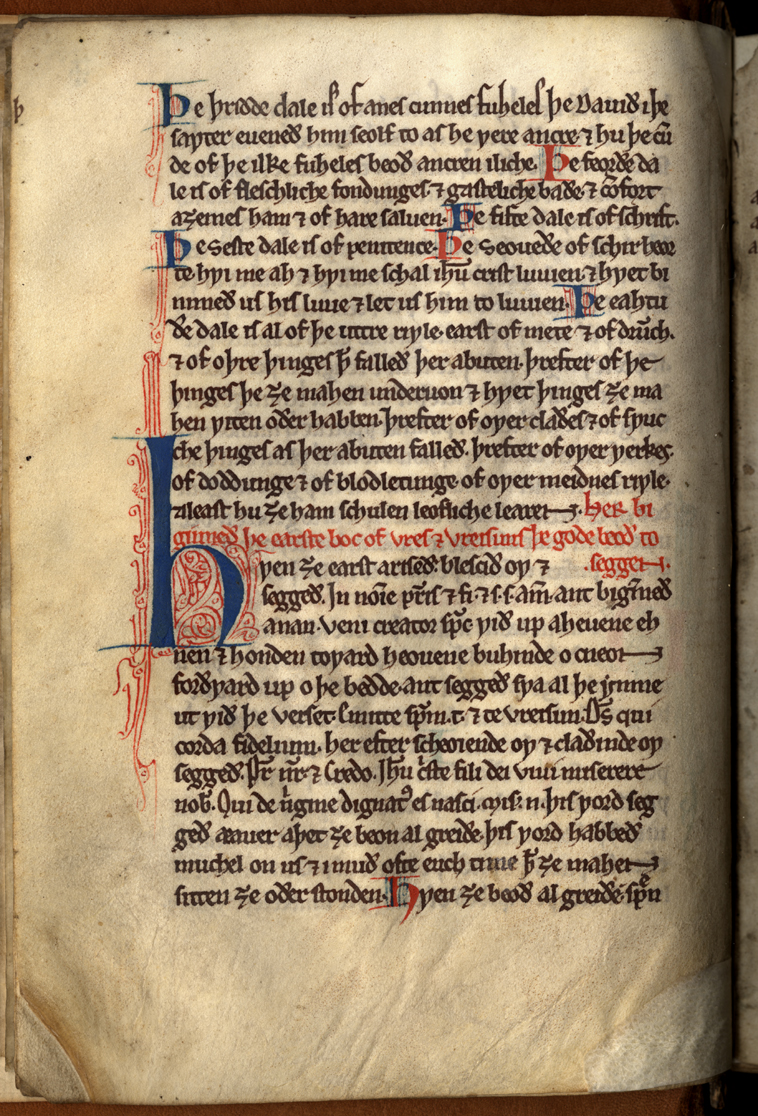 Þe þridde dale is of anes cunnes fuheles þe Dauið i þe
sapter eueneð him seolf to as he ƿere ancre ⁊ hu þe cū
de of þe ilke fuheles beoð ancren iliche. Þe feorðe da
le is of fleschliche fondunges ⁊ gasteliche baðe ⁊ cōfort
aȝeines ham ⁊ of hare saluen. Þe fifte dale is of schrift.
Þe seste dale is of penitence. Þe seoueðe of schir heor
te hƿi me ah ⁊ hƿi me schal ihū crist luuien ⁊ hƿet bi
nimeð us his luue ⁊ let us him to luuien. Þe eahtu
ðe dale is al of þe uttre riƿle. earst of mete ⁊ of drūch.
⁊ of oþre þinges ꝥ falleð þer abuten. þrefter of þe
þinges þe ȝe mahen underuon ⁊ hƿet þinges ȝe ma
hen ƿiten oðer habben. þrefter of oƿer claðes ⁊ of sƿuc
che þinges as þer abuten falleð. þrefter of oƿer ƿerkes.
of doddunge ⁊ of blodletunge. of oƿer meidnes riƿle.
aleast hu ȝe ham schulen leofliche learen. her bi
ginneð þe earste boc of vres ⁊ vreisuns þe gode beoð to
hƿen ȝe earst ariseð blescið oƿ ⁊ seggen.
seggeð. In noīe pr̄is ⁊ fi. ⁊ s. s. am̄. ant biginneð
anan. veni creator sp̄c ƿið up aheuene eh
nen ⁊ honden toƿard heouene buhinde o cneon
forðƿard up o þe bedde. ant seggeð sƿa al þe ymne
ut ƿið þe verset. Emitte sp̄m. t. ⁊ te vreisun. Dꝰ qui
corda fidelium. her efter scheoiende oƿ ⁊ claðinde oƿ
seggeð. Pr̄ nr̄ ⁊ Credo. Ihū cⁱste fili dei viui miserere
nob̄. Qui de uⁱgine dignatꝰ es nasci. þis ƿord seg
geð aauer aþet ȝe beon al greiðe. þis ƿord habbeð
muchel on us ⁊ i muð ofte euch time ꝥ ȝe mahen
sitten ȝe oðer stonden. Hƿen ȝe beoð al greiðe. sp̄n